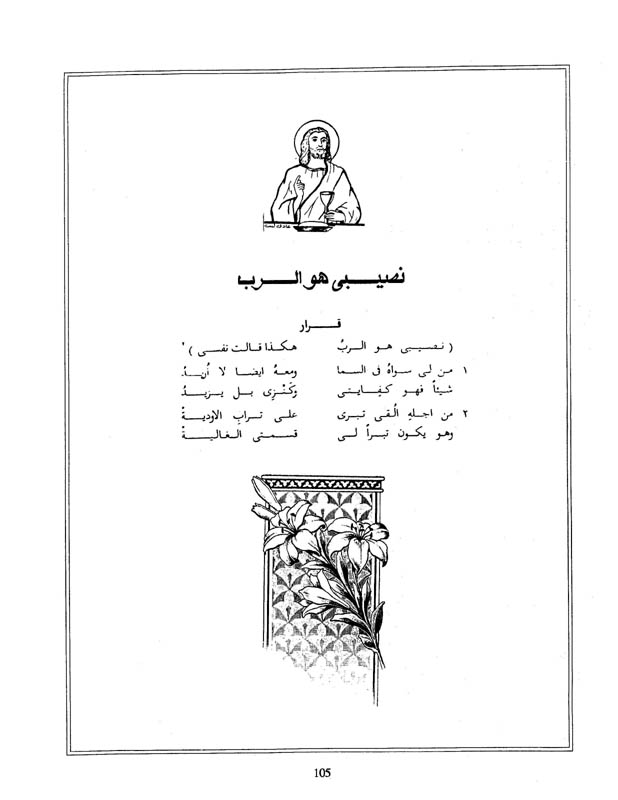 نصيبى هو الرب
قرار
( نصيبى هو الربُ هكذا قالت نفسى )٢
١ من لى سواهُ فى السما ومعهُ ايضا لا أُريدْ
شيئاً فهو كفايتى وكَنْزِى بل يزيدُ
٢ من اجلهِ أُلقى تبرى على ترابِ الاوديةْ
وهو يكون تبراً لى قسمتى الغاليةْ
105